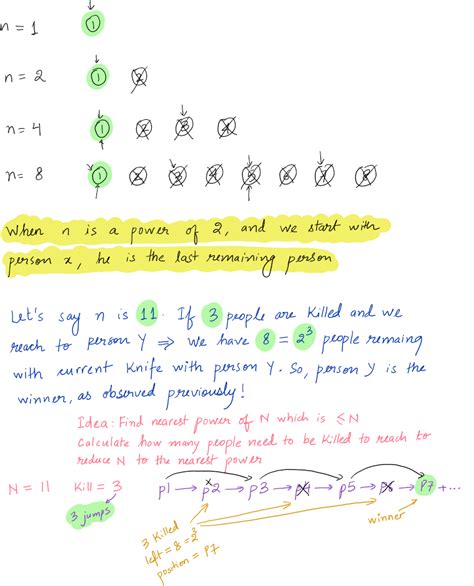 n = 1 1
n = 2 1 2
n = 4 1 2 3 4
n = 8 1 2 3 4 5 6 7 8
When n is a power of 2, and we start with
person x, he is the last remaining person
Let's say n is 11. If 3 people are killed and we
reach to person Y ⇒ we have 8 = 2³ people remaing
with current Knife with person Y. So, person Y is the
winner, as observed previously!
Idea: Find nearest power of N which is ≤N
Calculate how many people need to be killed to reach to
reduce N to the nearest power
N = 11 Kill = 3 p1 → p2 → p3 → p4 → p5 → p6 → P7 + ...
3 jumps
3 killed
left = 8 = 2³
position = P7
winner